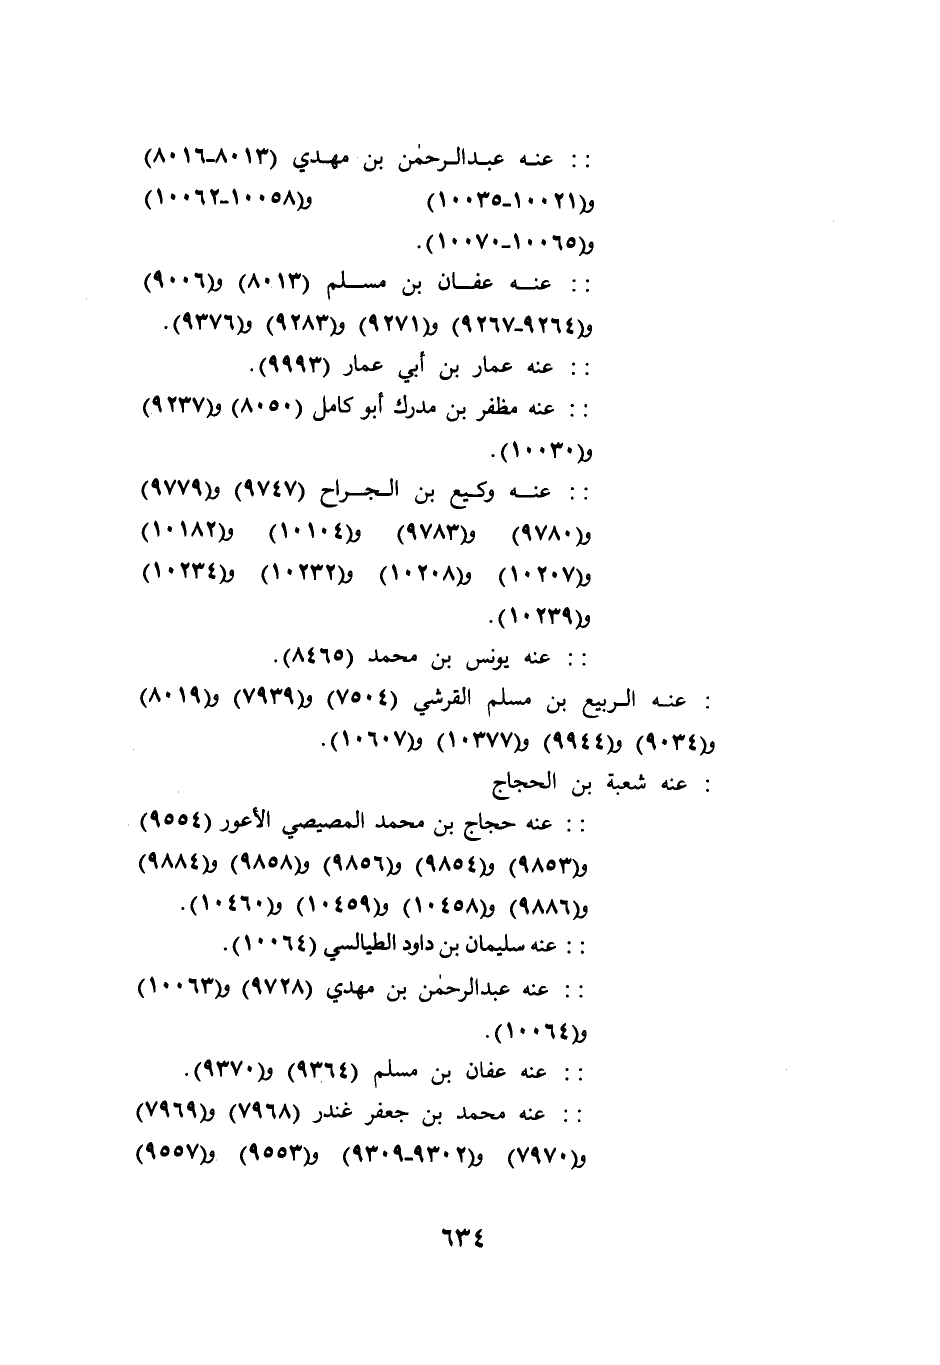 :: عنه عبدالرحمٰن بن مهدي (٨٠١٣ـ٨٠١٦)
و(١٠٠٢١ـ١٠٠٣٥) و(١٠٠٥٨ـ١٠٠٦٢)
و(١٠٠٦٥ـ١٠٠٧٠).
:: عنه عفان بن مسلم (٨٠١٣) و(٩٠٠٦)
و(٩٢٦٤ـ٩٢٦٧) و(٩٢٧١) و(٩٢٨٣) و(٩٣٧٦).
:: عنه عمار بن أبي عمار (٩٩٩٣).
:: عنه مظفر بن مدرك أبو كامل (٨٠٥٠) و(٩٢٣٧)
و(١٠٠٣٠).
:: عنه وكيع بن الجراح (٩٧٤٧) و(٩٧٧٩)
و(٩٧٨٠) و(٩٧٨٣) و(١٠١٠٤) و(١٠١٨٢)
و(١٠٢٠٧) و(١٠٢٠٨) و(١٠٢٣٢) و(١٠٢٣٤)
و(١٠٢٣٩).
:: عنه يونس بن محمد (٨٤٦٥).
: عنه الربيع بن مسلم القرشي (٧٥٠٤) و(٧٩٣٩) و(٨٠١٩)
و(٩٠٣٤) و(٩٩٤٤) و(١٠٣٧٧) و(١٠٦٠٧).
: عنه شعبة بن الحجاج
:: عنه حجاج بن محمد المصيصي الأعور (٩٥٥٤)
و(٩٨٥٣) و(٩٨٥٤) و(٩٨٥٦) و(٩٨٥٨) و(٩٨٨٤)
و(٩٨٨٦) و(١٠٤٥٨) و(١٠٤٥٩) و(١٠٤٦٠).
:: عنه سليمان بن داود الطيالسي (١٠٠٦٤).
:: عنه عبدالرحمٰن بن مهدي (٩٧٢٨) و(١٠٠٦٣)
و(١٠٠٦٤).
:: عنه عفان بن مسلم (٩٣٦٤) و(٩٣٧٠).
:: عنه محمد بن جعفر غندر (٧٩٦٨) و(٧٩٦٩)
و(٧٩٧٠) و(٩٣٠٢ـ٩٣٠٩) و(٩٥٥٣) و(٩٥٥٧)
٦٣٤